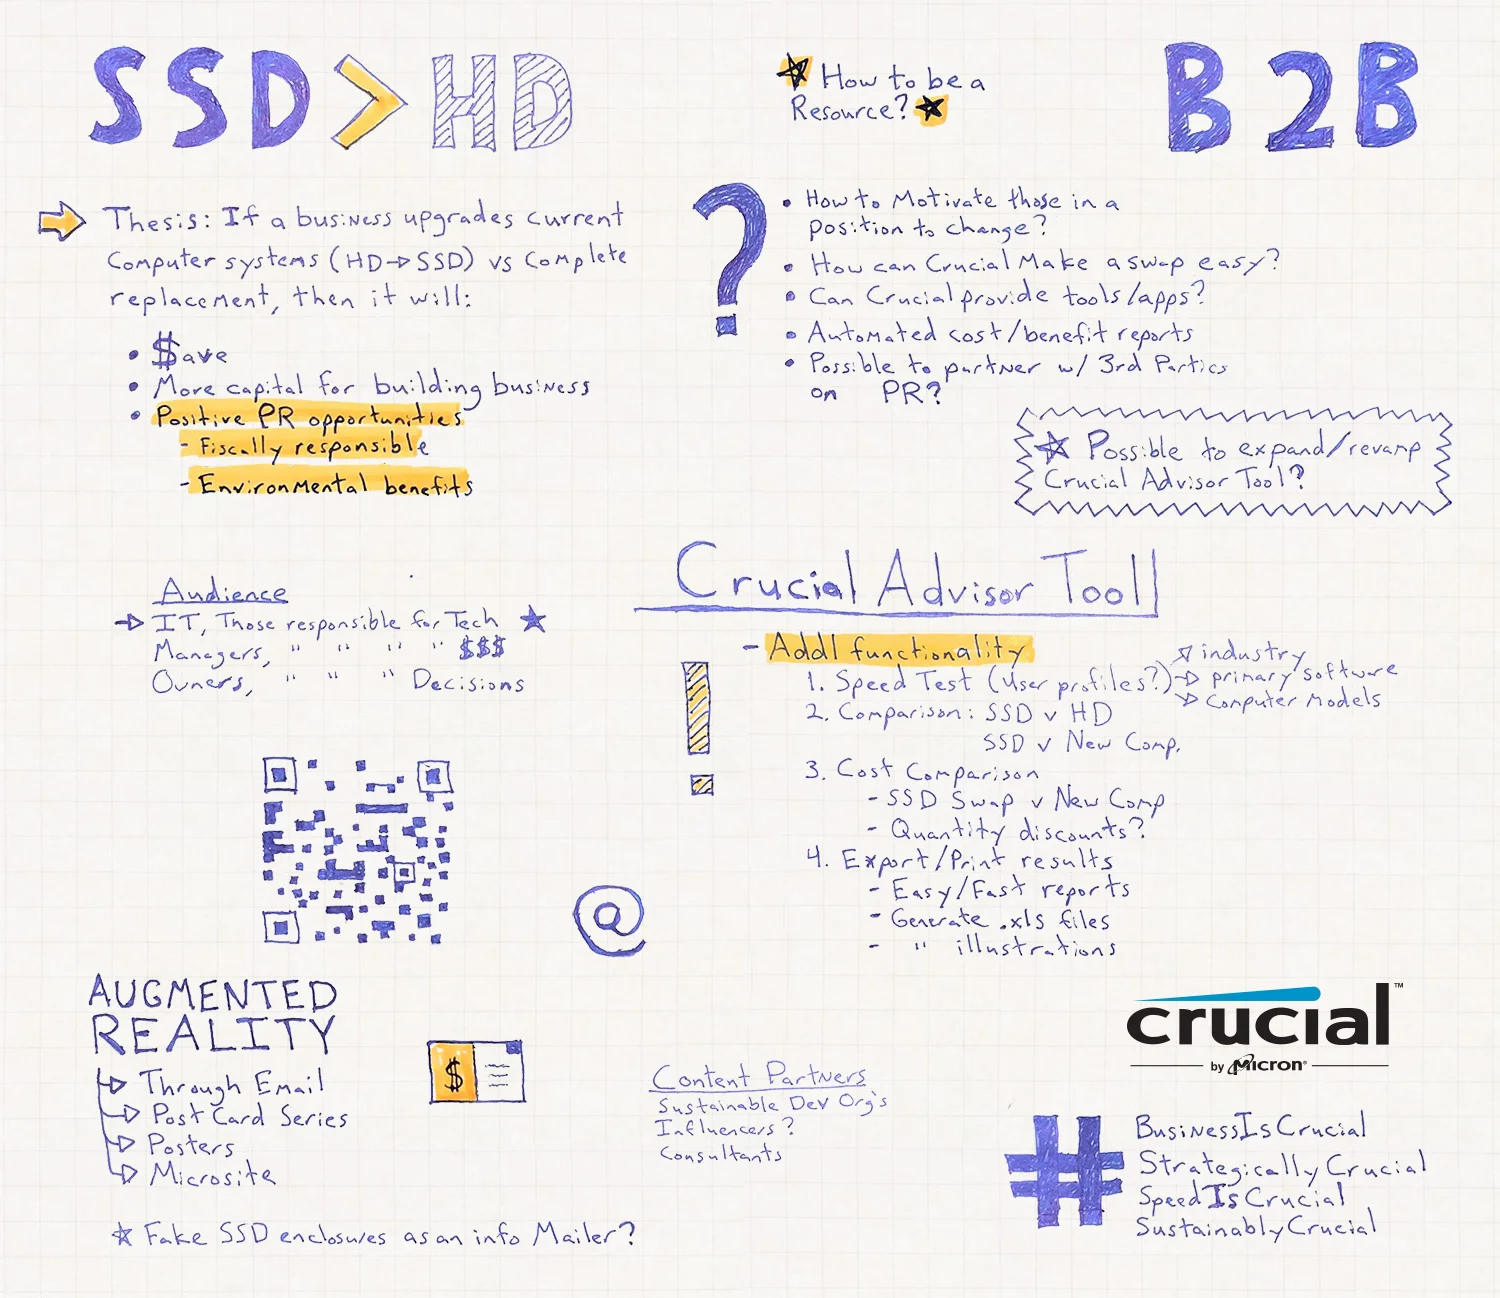 SSD > HD
Thesis: If a business upgrades current
Computer systems (HD→SSD) vs Complete
replacement, then it will:
• $ave
• More capital for building business
• Positive PR opportunities
- Fiscally responsible
- Environmental benefits
★ How to be a
Resource? ★
B2B
?
• How to Motivate those in a
position to change?
• How can Crucial Make a swap easy?
• Can Crucial provide tools/apps?
• Automated cost/benefit reports
• Possible to partner w/ 3rd Parties
on PR?
★ Possible to expand/revamp
Crucial Advisor Tool?
Audience
→ IT, Those responsible for Tech ★
Managers, " " " " $$$
Owners, " " " Decisions
Crucial Advisor Tool
!
- Addl functionality
1. Speed Test (User profiles?)
→ industry
→ primary software
→ Computer Models
2. Comparison: SSD v HD
SSD v New Comp.
3. Cost Comparison
- SSD Swap v New Comp
- Quantity discounts?
4. Export/Print results
- Easy/Fast reports
- Generate .xls files
- " illustrations
@
AUGMENTED
REALITY
→ Through Email
→ Post Card Series
→ Posters
→ Microsite
$
★ Fake SSD enclosures as an info Mailer?
Content Partners
Sustainable Dev Org's
Influencers?
Consultants
crucial™
by Micron®
#
BusinessIsCrucial
StrategicallyCrucial
SpeedIsCrucial
SustainablyCrucial